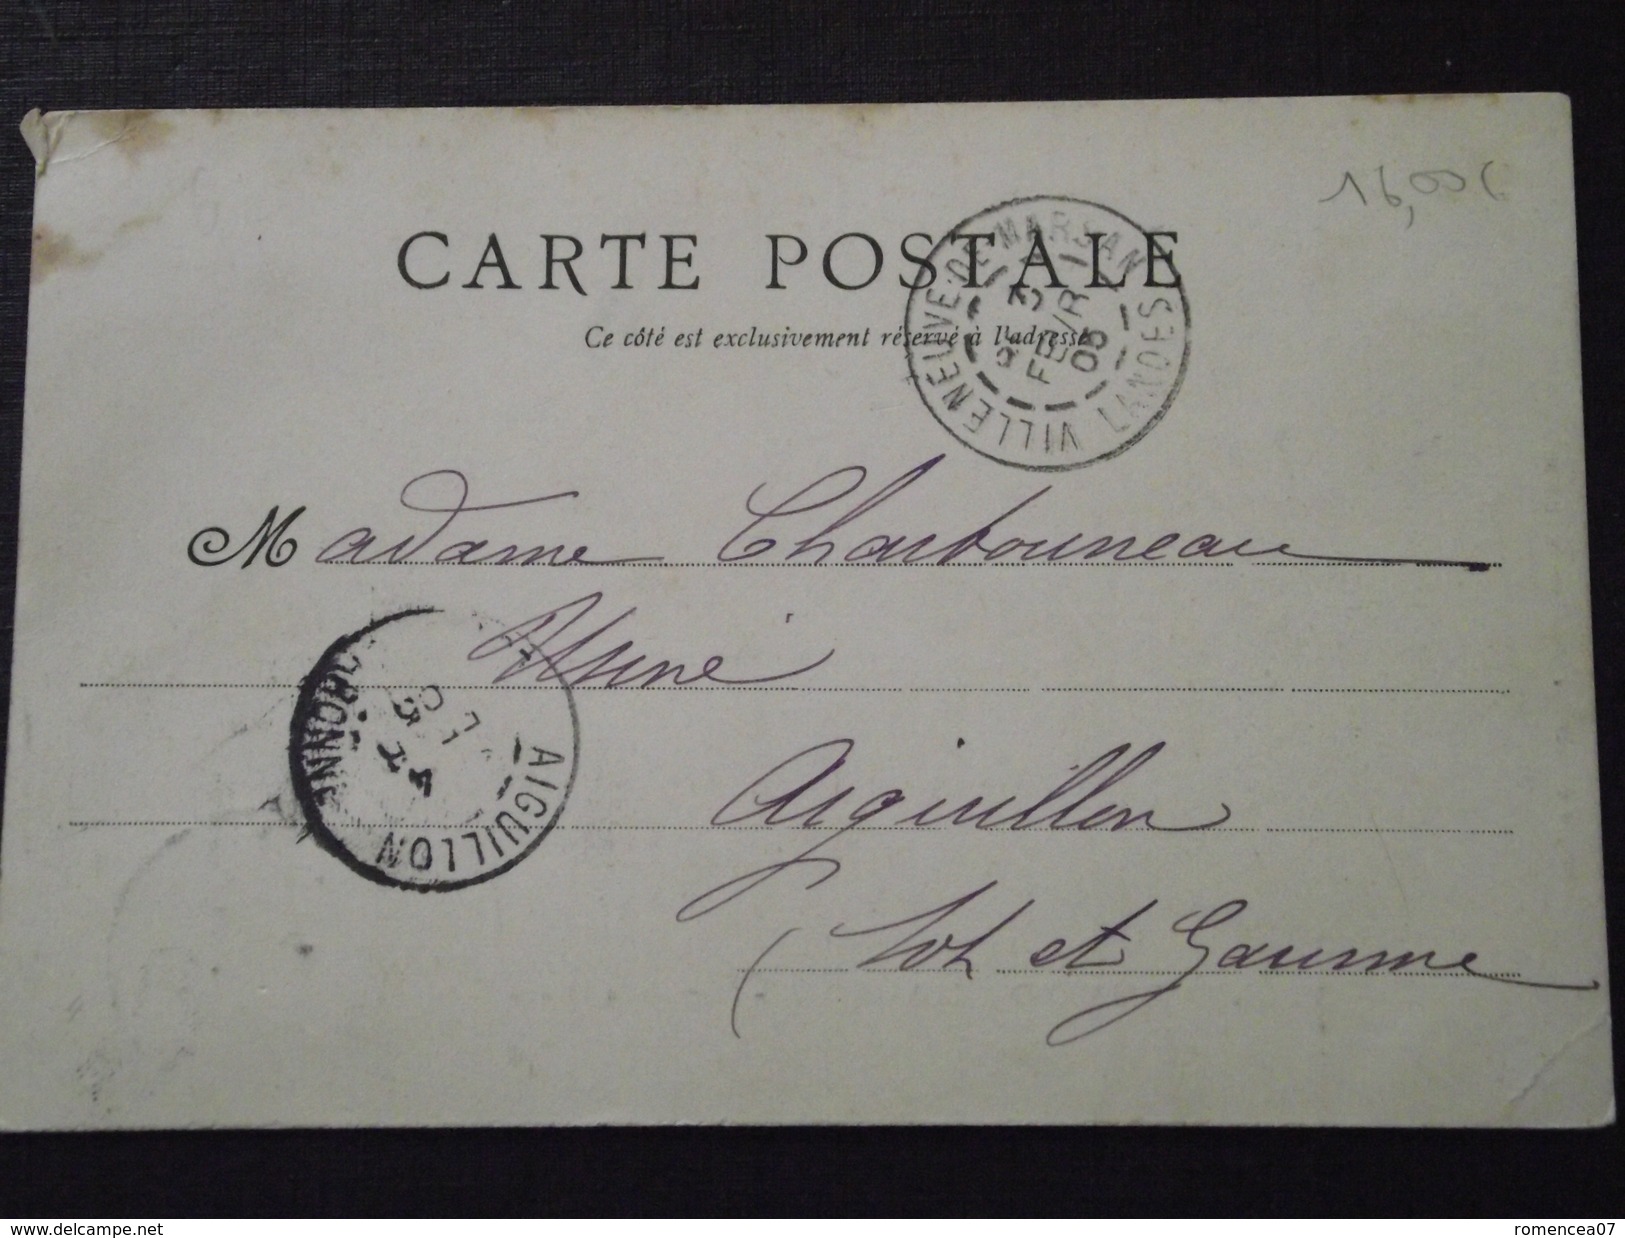 16,00 €
CARTE POSTALE
Ce côté est exclusivement réservé à l'adresse
VILLENEUVE-DE-MARSAN LANDES
3
FEVR
05
Madame Charbonneau
Usine
Aiguillon
(Lot et Garonne
AIGUILLON
GARONNE
www.delcampe.net
romencea07